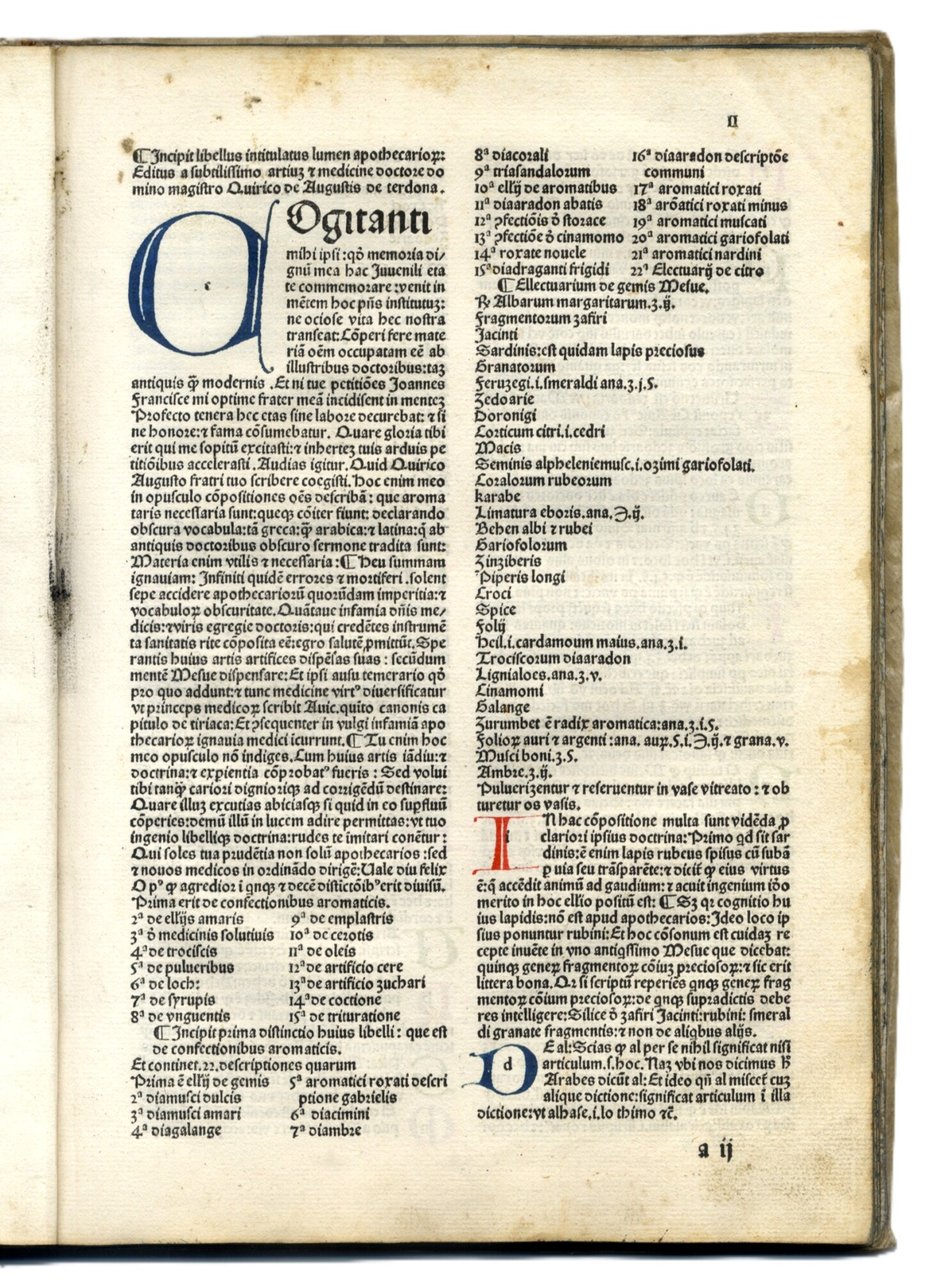 II
¶Incipit libellus intitulatus lumen apothecarioꝝ:
Editus a subtilissimo artiuʒ ⁊ medicine doctore do
mino magistro Quirico de Augustis de terdona.
COgitanti
mihi ipsi: qḋ memoria di/
gnū mea hac Juuenili eta
te commemorare: venit in
mētem hoc pn̄s institutuʒ:
ne ociose vita hec nostra
transeat: Cōperi fere mate
riā oēm occupatam eē ab
illustribus doctoribus: taʒ
antiquis q̄ȝ modernis. Et ni tue petitiōes Joannes
Francisce mi optime frater meā incidisent in menteʒ
Profecto tenera hec etas sine labore decurebat: ⁊ si
ne honore: ⁊ fama cōsumebatur. Quare gloria tibi
erit qui me sopitū excitasti: ⁊ inherteʒ tuis arduis pe
titiōibus accelerasti. Audias igitur. Quid Quirico
Augusto fratri tuo scribere coegisti. Hoc enim meo
in opusculo cōpositiones oēs describā: que aroma
taris necessaria sunt: queqȝ cōiter fiunt: declarando
obscura vocabula: tā greca: q̄ȝ arabica: ⁊ latina: q̄ ab
antiquis doctoribus obscuro sermone tradita sunt:
Materia enim vtilis ⁊ necessaria: ¶Heu summam
ignauiam: Infiniti quidē errores ⁊ mortiferi. solent
sepe accidere apothecariorū quorūdam imperitia: ⁊
vocabuloꝝ obscuritate. Quātaue infamia dn̄is me/
dicis: ⁊ viris egregie doctoris: qui credētes instrumē
ta sanitatis rite cōposita eē: egro salutē ꝓmittūt. Spe
rantis huius artis artifices dispēsas suas: secūdum
mentē Mesue dispensare: Et ipsi ausu temerario qḋ
pro quo addunt: ⁊ tunc medicine virtꝰ diuersificatur
vt princeps medicoꝝ scribit Auic. quīto canonis ca
pitulo de tiriaca: Et ꝯsequenter in vulgi infamiā apo
thecarioꝝ ignauia medici īcurrunt. ¶Tu enim hoc
meo opusculo nō indiges. Cum huius artis iādiu: ⁊
doctrina: ⁊ expientia cōprobatꝰ fueris: Sed volui
tibi tanqȝ cariori dignioriqȝ ad corrigēdū destinare:
Quare illuʒ excutias abiciasqȝ si quid in eo supfluū
cōperies: demū illū in lucem adire permittas: vt tuo
ingenio libelliqȝ doctrina: rudes te imitari conētur:
Qui soles tua prudētia non solū apothecarios: sed
⁊ nouos medicos in ordinādo dirigē: Uale diu felix
O pꝰ qȝ agredior ī qnqȝ ⁊ decē distīctōibꝰ erit diuisū.
Prima erit de confectionibus aromaticis.
2ª de ellijs amaris
3ª ḋ medicinis solutiuis
4ª de trociscis
5ª de pulueribus
6ª de loch:
7ª de syrupis
8ª de vnguentis
9ª de emplastris
10ª de cerotis
11ª de oleis
12ª de artificio cere
13ª de artificio zuchari
14ª de coctione
15ª de trituratione
¶Incipit prima distinctio huius libelli: que est
de confectionibus aromaticis.
Et continet .22. descriptiones quarum
Prima ē ellij de gemis
2ª diamusci dulcis
3ª diamusci amari
4ª diagalange
5ª aromatici roxati descri
ptione gabrielis
6ª diacimini
7ª diambre
8ª diacorali
9ª triasandalorum
10ª ellij de aromatibus
11ª diaaradon abatis
12ª ꝯfectiōis ḋ storace
13ª ꝯfectiōe ḋ cinamomo
14ª roxate nouele
15ª diadraganti frigidi
16ª diaaradon descriptōe
communi
17ª aromatici roxati
18ª arōatici roxati minus
19ª aromatici muscati
20ª aromatici gariofolati
21ª aromatici nardini
22ª Electuarij de citro
¶Ellectuarium de gemis Mesue.
℞ Albarum margaritarum.ʒ.ij.
Fragmentorum zafiri
Jacinti
Sardinis: est quidam lapis preciosus
Granatorum
Feruzegi.i.smeraldi ana.ʒ.j.S.
Zedoarie
Doronigi
Corticum citri.i.cedri
Macis
Seminis alpheleniemusc.i.ozimi gariofolati.
Coralorum rubeorum
karabe
Limatura eboris.ana.℈.ij.
Behen albi ⁊ rubei
Gariofolorum
Zinziberis
Piperis longi
Croci
Spice
Folij
Heil.i.cardamoum maius.ana.ʒ.i.
Trociscorum diaaradon
Lignialoes.ana.ʒ.v.
Cinamomi
Galange
Zurumbet ē radix aromatica: ana.ʒ.i.S.
Folioꝝ auri ⁊ argenti: ana. auꝝ.S.i.℈.ij.⁊ grana.v.
Musci boni.ʒ.S.
Ambre.ʒ.ij.
Puluerizentur ⁊ reseruentur in vase vitreato: ⁊ ob
turetur os vasis.
IN hac cōpositione multa sunt vidēda ꝓ
clariori ipsius doctrina: Primo qd sit sar
dinis: ē enim lapis rubeus spisus cū subā
ꝑ uia seu trāsparēte: ⁊ dicit̄ qȝ eius virtus
ē: qȝ accēdit animū ad gaudium: ⁊ acuit ingenium iḋo
merito in hoc ellio positū est: ¶Sʒ qꝛ cognitio hu
ius lapidis: nō est apud apothecarios: Ideo loco ip
sius ponuntur rubini: Et hoc cōsonum est cuidaʒ re
cepte inuēte in vno antiqssimo Mesue que dicebat:
quinqȝ generꝝ fragmentoꝝ cōiuʒ preciosoꝝ: ⁊ sic erit
littera bona. Qꝛ si scriptū reperiēs qnqȝ generꝝ frag
mentoꝝ cōium preciosoꝝ: de qnqȝ supradictis debe
res intelligere: Silice ḋ zafiri Jacinti: rubini: smeral
di granate fragmentis: ⁊ non de aliqbus alijs.
DE al: Scias qȝ al per se nihil significat nisi
articulum.s.hoc. Naʒ vbi nos dicimus ħ
Arabes dicūt al: Et ideo qn̄ al miscet̄ cuʒ
alique dictione: significat articulum ī illa
dictione: vt alhase.i.lo thimo ⁊c̄.
a ij